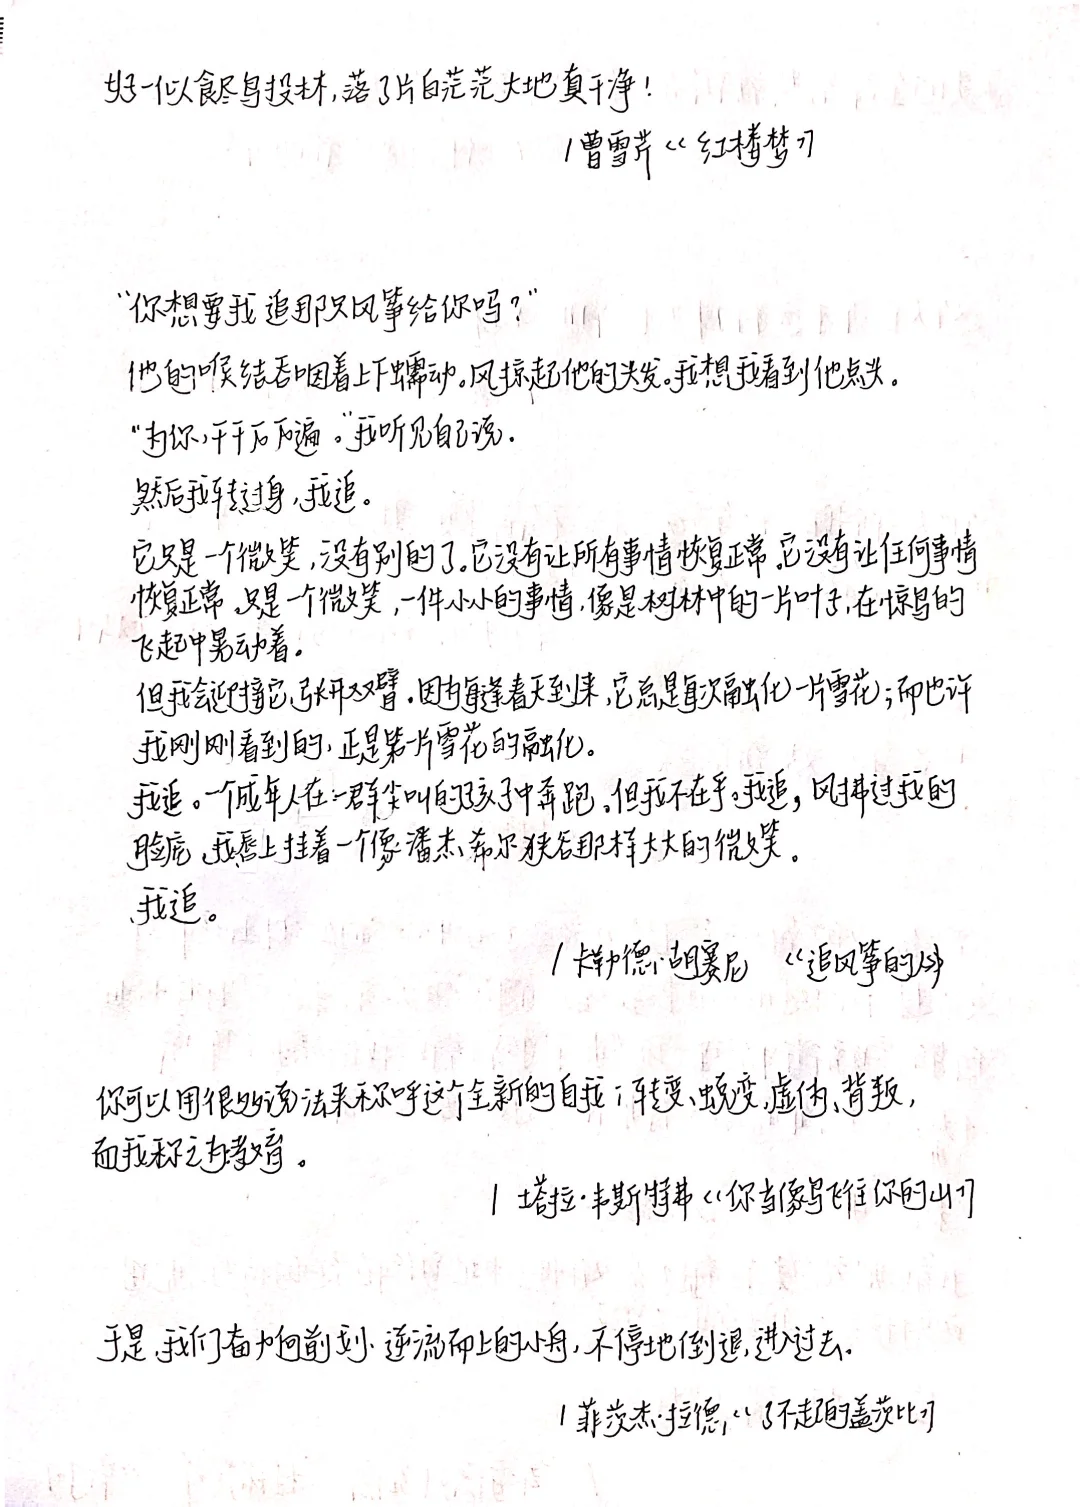 好一似食尽鸟投林,落了片白茫茫大地真干净!
/曹雪芹《红楼梦》
“你想要我追那只风筝给你吗?”
他的喉结吞咽着上下蠕动。风掠起他的头发。我想我看到他点头。
“为你,千千万万遍。”我听见自己说.
然后我转过身,我追。
它只是一个微笑,没有别的了.它没有让所有事情恢复正常.它没有让任何事情
恢复正常.只是一个微笑,一件小小的事情,像是树林中的一片叶子,在惊鸟的
飞起中晃动着。
但我会迎接它,张开双臂.因为每逢春天到来,它总是每次融化一片雪花;而也许
我刚刚看到的,正是第一片雪花的融化。
我追。一个成年人在一群尖叫的孩子中奔跑.但我不在乎。我追,风拂过我的
脸庞,我唇上挂着一个像潘杰希尔峡谷那样大大的微笑。
我追。
/卡勒德·胡赛尼 《追风筝的人》
你可以用很多说法来称呼这个全新的自我:转变、蜕变、虚伪、背叛,
而我称之为教育。
/塔拉·韦斯特弗《你当像鸟飞往你的山》
于是,我们奋力向前划.逆流而上的小舟,不停地倒退,进入过去.
/菲茨杰·拉德,《了不起的盖茨比》